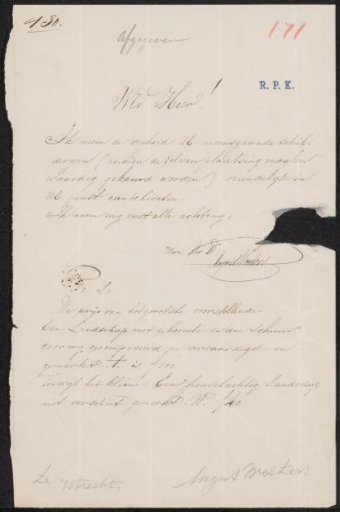 180.
afgegeven
171
R. P. K.
WEd Heer!
Ik neem de vrijheid UE nevensgaande schil-
derijen (indien dezelven plaatsing mogten
waardig gekeurd worden) vriendelijk in
UE gunst aantebevelen
Ik noem mij met alle achting:
Uwe
P. S.
De prijs van het grootste voorstellende
Een Landschap met geboomte en eene Schuur
door mij gecomponeerd en vervaardigd en
gemerkt A. is
terwijl het kleine Een heuvelachtig Landschap
met gemerkt
te Utrecht.
August